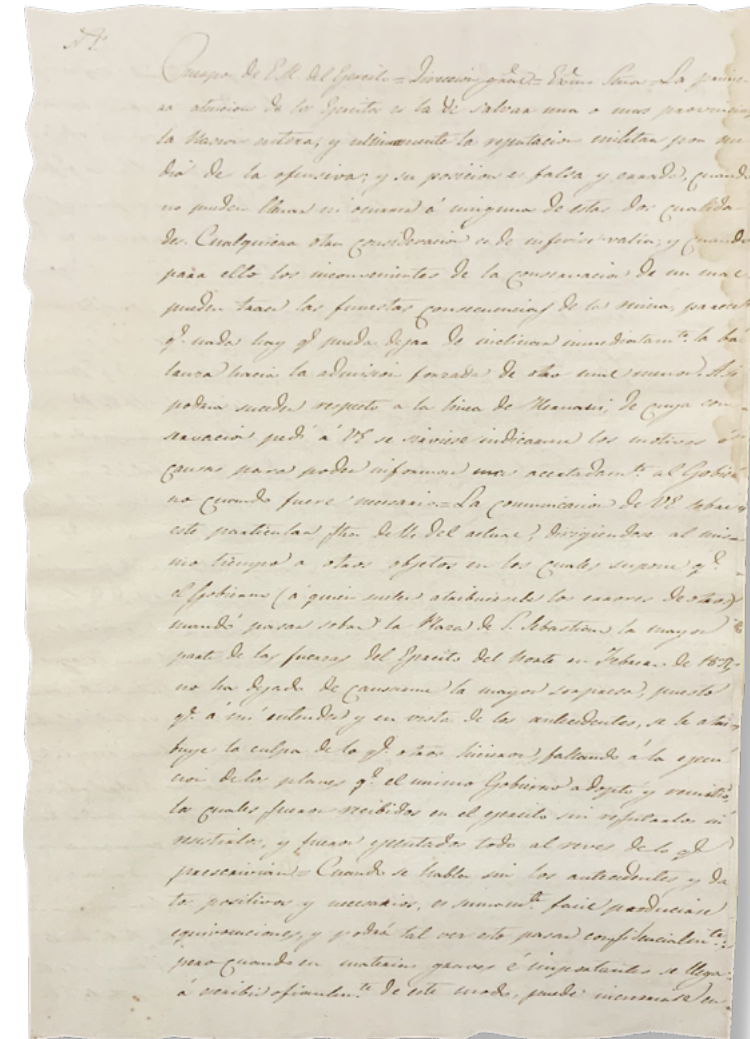 Cuerpo de E.M. del Egercito = Direccion gral = Exmo Señor = La prime-
ra atencion de los Egercitos es la de salvar una o mas provincias
la Nacion entera; y ultimamente la reputacion militar por me-
dio de la ofensiva; y su posicion es falsa y errada, cuando
no pueden llenar ni ocurrir á ninguna de estas dos cualida-
des. Cualquiera otra consideracion es de inferior valia; y cuando
para ello los inconvenientes de la conservacion de un mal
pueden traer las funestas consecuencias de la ruina, parece
q.e nada hay q.e pueda dejar de inclinar inmediatam.te la ba-
lanza hacia la admision forzada de otro mal menor. Asi
podria suceder respecto a la linea de Hernani, de cuya con-
servacion pedi á VE se sirviese indicarme los motivos ó
causas para poder informar mas acertadam.te al Gobier-
no cuando fuere necesario = La comunicacion de VE sobre
este particular fha de 11 del actual, dirigiendose al mis-
mo tiempo a otros objetos en los cuales supone q.e
el Gobierno (á quien suelen atribuirsele los errores de otros)
mandó pasar sobre la Plaza de S. Sebastian la mayor
parte de las fuerzas del Egercito del Norte en Febrero de
no ha dejado de causarme la mayor sorpresa, puesto
q.e á mi entender y en vista de los antecedentes, se le atri-
buye la culpa de lo q.e otros hicieron, faltando á la egecu-
cion de los planes q.e el mismo Gobierno adoptó y remitió,
los cuales fueron recibidos en el egercito sin refutarlos ni
resistirlos, y fueron egecutados todo al reves de lo q.e
prescrivian = Cuando se habla sin los antecedentes y da-
tos positivos y necesarios, es sumam.te facil producirse
equivocaciones, y podrá tal vez esto pasar confidencialm.te;
pero cuando en materias graves é importantes se llega
á escribir oficialm.te de este modo, puede incurrirse en